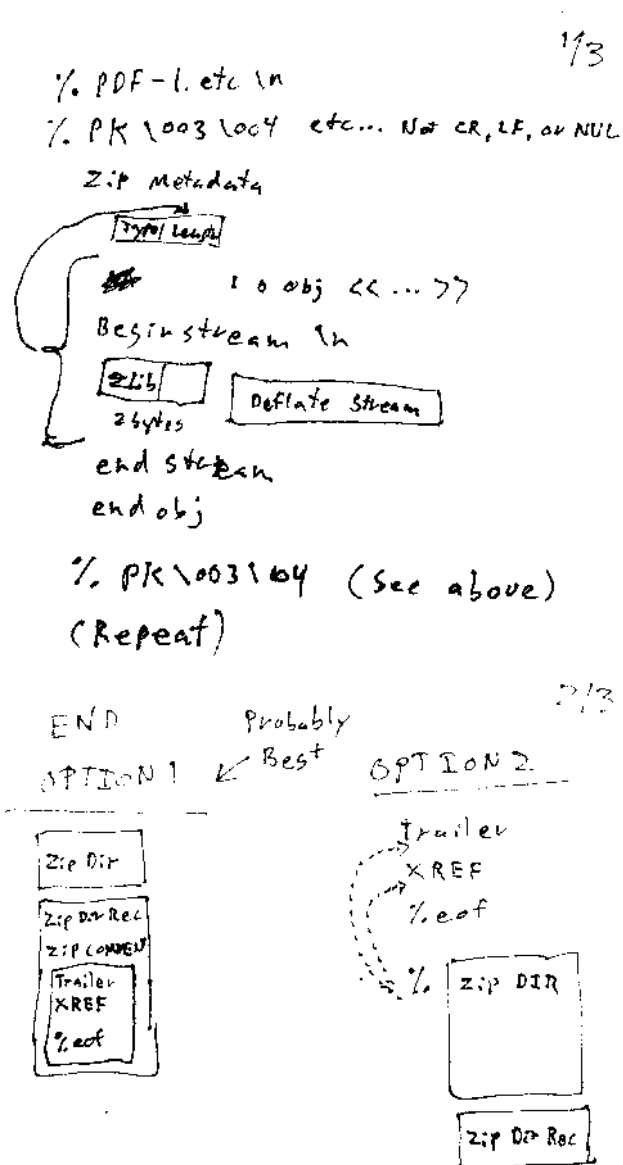 1/3
%. PDF-1. etc \n
%. PK \003 \004 etc... Not CR, LF, or NUL
Zip Metadata
Type/ Length
1 0 obj << ... >>
Begin stream \n
Zlib
2 bytes
Deflate Stream
end stream
end obj
%. PK\003\004 (See above)
(Repeat)
2/3
END
Probably
Best
OPTION 1
OPTION 2
Zip Dir
Zip Dir Rec
ZIP COMMENT
Trailer
XREF
%eof
Trailer
XREF
%eof
%
Zip DIR
Zip Dir Rec